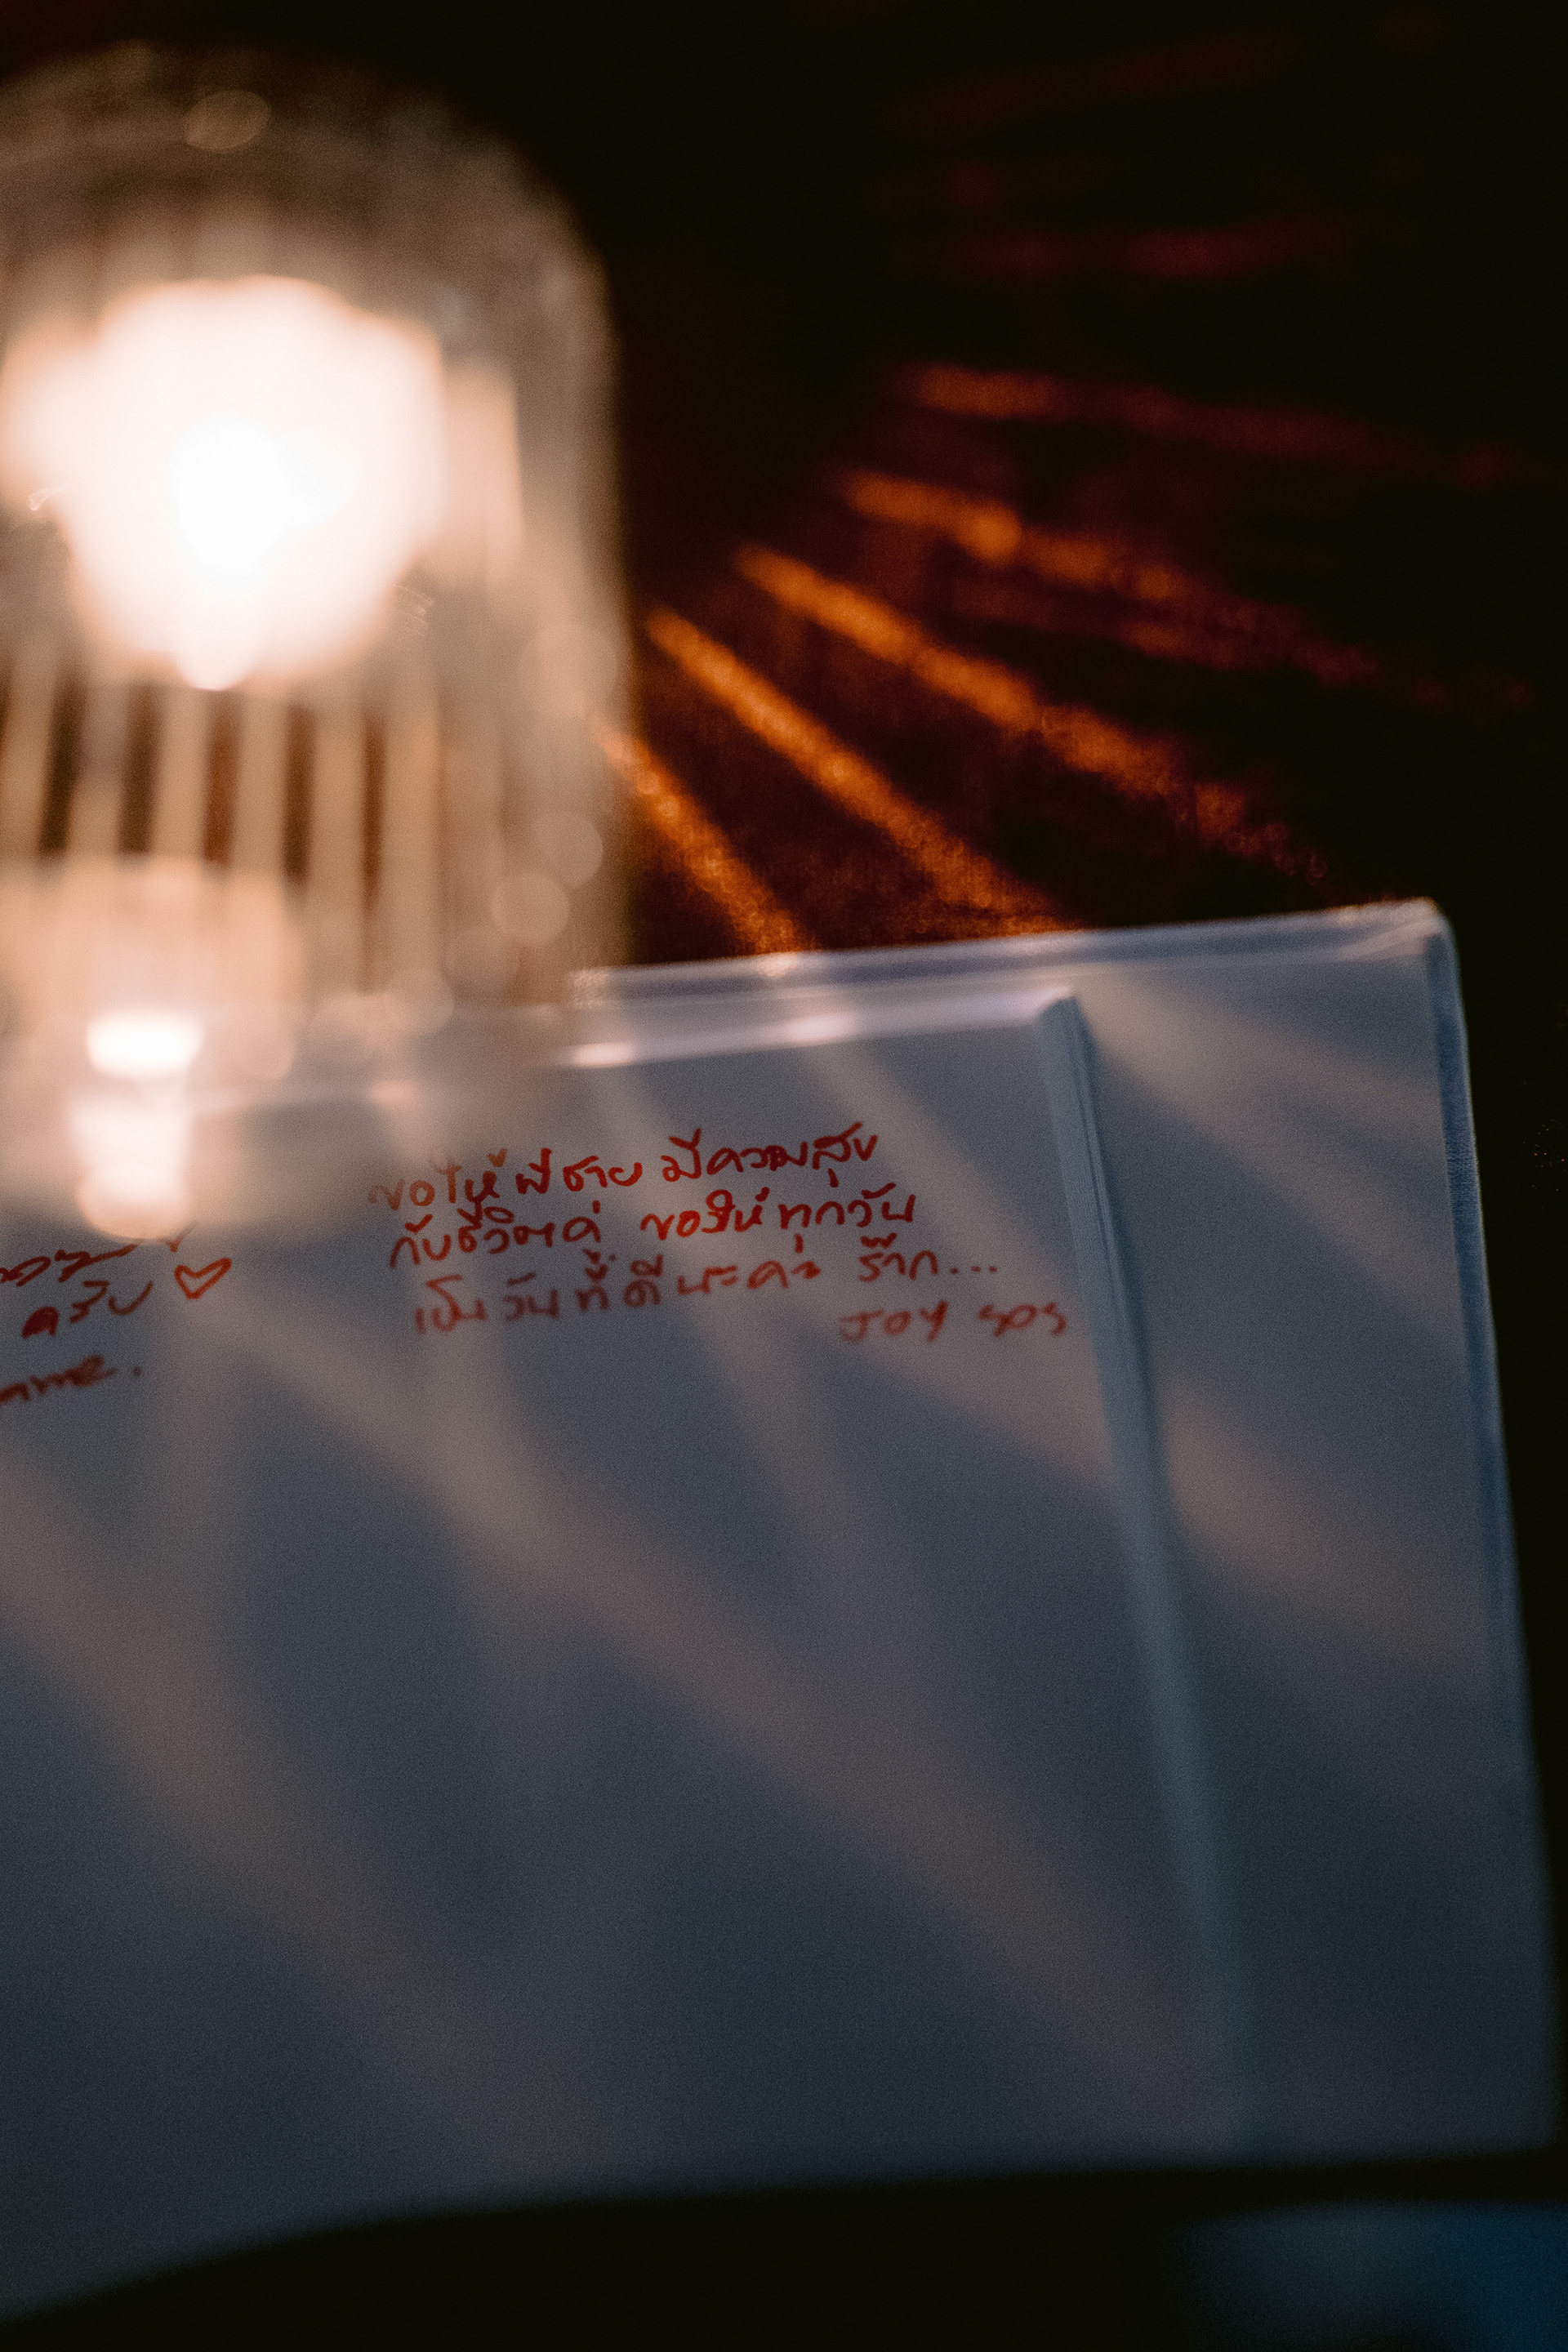 ขอให้พี่ชาย มีความสุข
กับชีวิตคู่ ขอให้ทุกวัน
เป็นวันที่ดีนะคะ ร๊าก...
JOY SOS
ครับ ♡